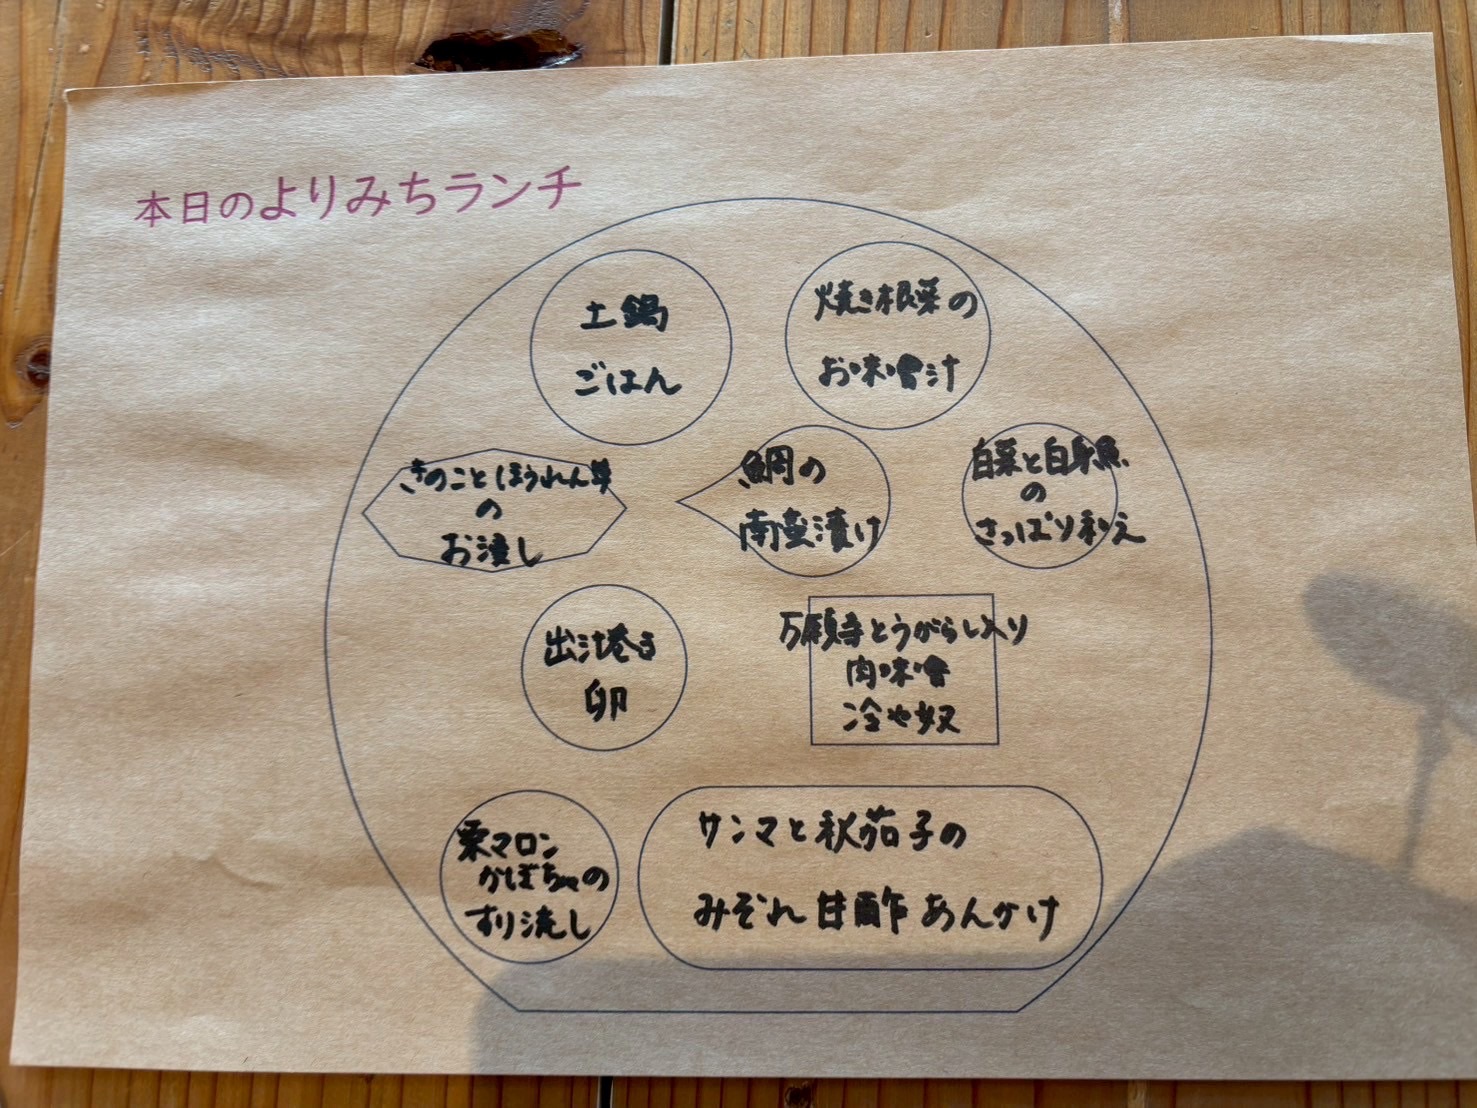 本日のよりみちランチ
土鍋
ごはん
焼き根菜の
お味噌汁
きのことほうれん草
の
お浸し
鯛の
南蛮漬け
白菜と白身魚
の
さっぱり和え
出汁巻き
卵
万願寺とうがらし入り
肉味噌
冷や奴
栗マロン
かぼちゃの
すり流し
サンマと秋茄子の
みぞれ甘酢あんかけ